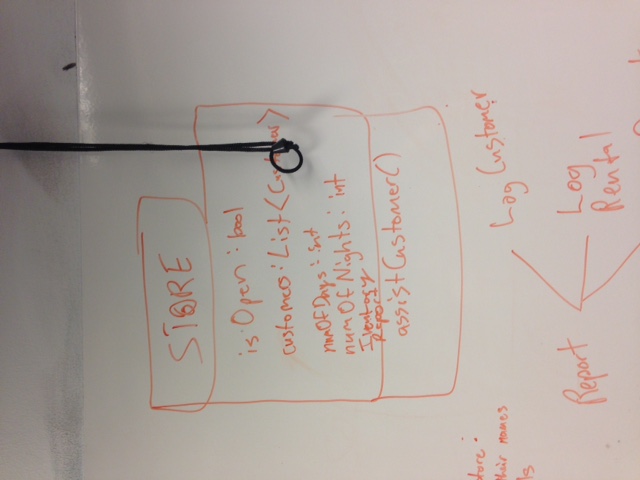 STORE
isOpen : bool
customers : List<Customer>
numOfDays : int
numOfNights : int
Inventory
Report
assistCustomer()
tore :
their names
ls
Log Customer
Report
Log
Rental